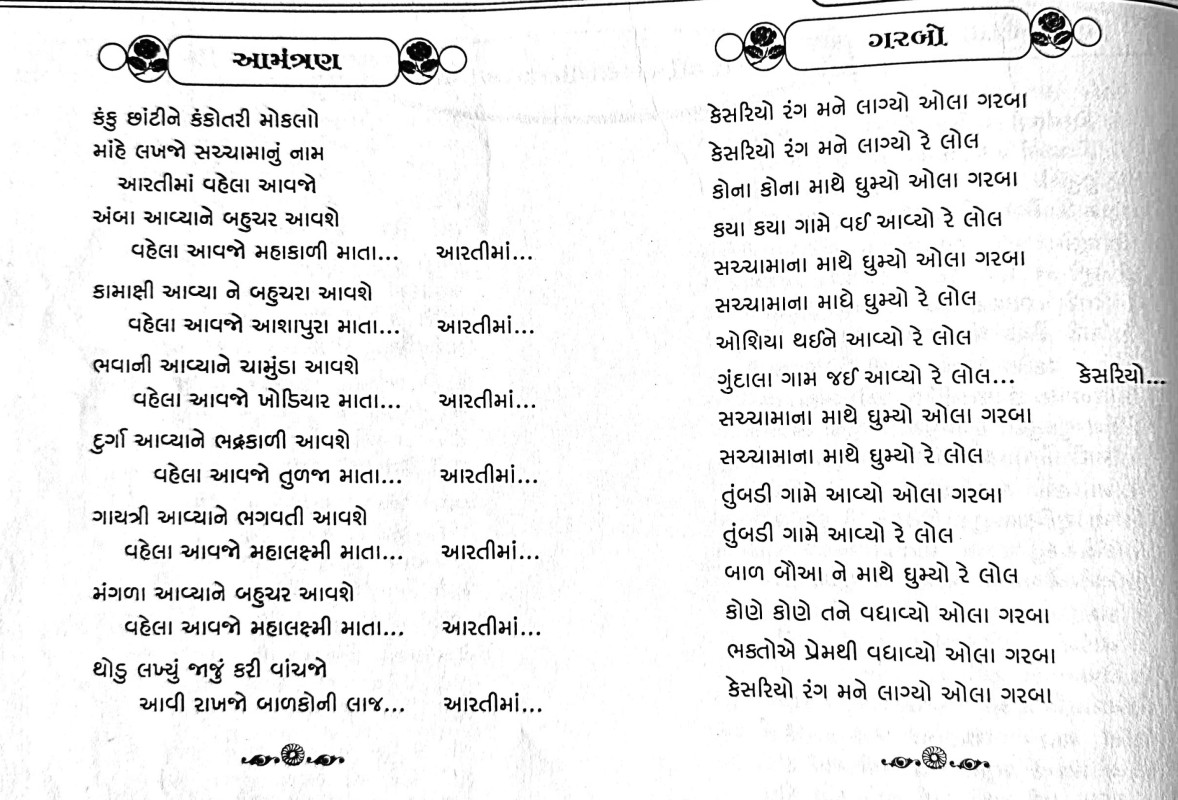 આમંત્રણ
કંકુ છાંટીને કંકોતરી મોકલાો
માંહે લખજો સચ્ચામાનું નામ
આરતીમાં વહેલા આવજો
અંબા આવ્યાને બહુચર આવશે
વહેલા આવજો મહાકાળી માતા... આરતીમાં...
કામાક્ષી આવ્યા ને બહુચરા આવશે
વહેલા આવજો આશાપુરા માતા... આરતીમાં...
ભવાની આવ્યાને ચામુંડા આવશે
વહેલા આવજો ખોડિયાર માતા... આરતીમાં...
દુર્ગા આવ્યાને ભદ્રકાળી આવશે
વહેલા આવજો તુળજા માતા... આરતીમાં...
ગાયત્રી આવ્યાને ભગવતી આવશે
વહેલા આવજો મહાલક્ષ્મી માતા... આરતીમાં...
મંગળા આવ્યાને બહુચર આવશે
વહેલા આવજો મહાલક્ષ્મી માતા... આરતીમાં...
થોડુ લખ્યું જાજું કરી વાંચજો
આવી રાખજો બાળકોની લાજ... આરતીમાં...
ગરબો
કેસરિયો રંગ મને લાગ્યો ઓલા ગરબા
કેસરિયો રંગ મને લાગ્યો રે લોલ
કોના કોના માથે ઘુમ્યો ઓલા ગરબા
કયા કયા ગામે વઈ આવ્યો રે લોલ
સચ્ચામાના માથે ઘુમ્યો ઓલા ગરબા
સચ્ચામાના માધે ઘુમ્યો રે લોલ
ઓશિયા થઈને આવ્યો રે લોલ
ગુંદાલા ગામ જઈ આવ્યો રે લોલ... કેસરિયો...
સચ્ચામાના માથે ઘુમ્યો ઓલા ગરબા
સચ્ચામાના માથે ઘુમ્યો રે લોલ
તુંબડી ગામે આવ્યો ઓલા ગરબા
તુંબડી ગામે આવ્યો રે લોલ
બાળ બૌઆ ને માથે ઘુમ્યો રે લોલ
કોણે કોણે તને વધાવ્યો ઓલા ગરબા
ભકતોએ પ્રેમથી વધાવ્યો ઓલા ગરબા
કેસરિયો રંગ મને લાગ્યો ઓલા ગરબા